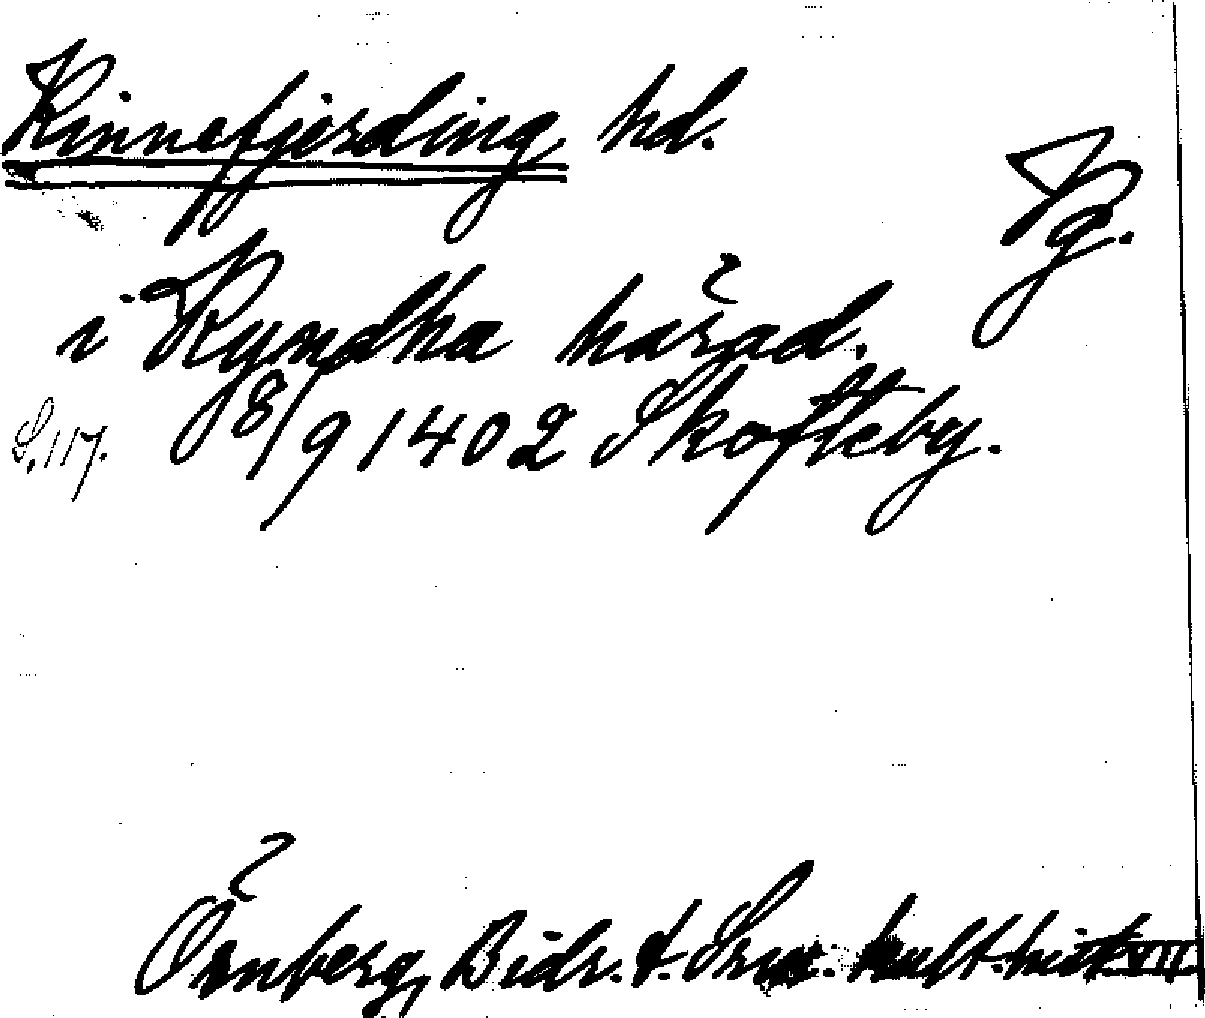 Kinnefjerding hd.
Vg.
i Kyndha härad.
S. 117. 8/9 1402 Skofteby.
Örnberg, Bidr. t. Sv. kult. hist. VII